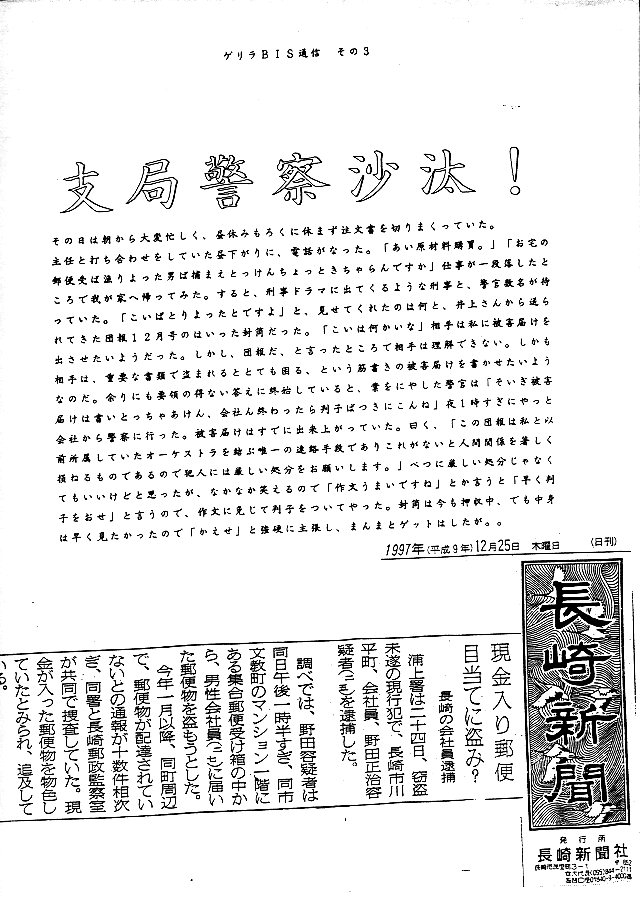 ゲリラBIS通信　その3
支局警察沙汰！
その日は朝から大変忙しく、昼休みもろくに休まず注文書を切りまくっていた。
主任と打ち合わせをしていた昼下がりに、電話がなった。「あい原材料購買。」「お宅の
郵便受ば漁りよった男ば捕まえとっけんちょっときちゃらんですか」仕事が一段落したと
ころで我が家へ帰ってみた。すると、刑事ドラマに出てくるような刑事と、警官数名が待
っていた。「こいばとりよったとですよ」と、見せてくれたのは何と、井上さんから送ら
れてきた団報12月号のはいった封筒だった。「こいは何かいな」相手は私に被害届けを
出させたいようだった。しかし、団報だ、と言ったところで相手は理解できない。しかも
相手は、重要な書類で盗まれるととても困る、という筋書きの被害届けを書かせたいよう
なのだ。余りにも要領の得ない答えに終始していると、業をにやした警官は「そいぎ被害
届けは書いとっちゃあけん、会社ん終わったら判子ばつきにこんね」夜1時すぎにやっと
会社から警察に行った。被害届けはすでに出来上がっていた。曰く、「この団報は私と以
前所属していたオーケストラを結ぶ唯一の連絡手段でありこれがないと人間関係を著しく
損ねるものであるので犯人には厳しい処分をお願いします。」べつに厳しい処分じゃなく
てもいいけどと思ったが、なかなか笑えるので「作文うまいですね」とか言うと「早く判
子をおせ」と言うので、作文に免じて判子をついてやった。封筒は今も押収中、でも中身
は早く見たかったので「かえせ」と強硬に主張し、まんまとゲットはしたが。。
1997年(平成9年)12月25日　木曜日　(日刊)
長崎新聞
発行所
長崎新聞社
現金入り郵便
目当てに盗み？
長崎の会社員逮捕
浦上署は二十四日、窃盗
未遂の現行犯で、長崎市川
平町、会社員、野田正治容
疑者を逮捕した。
調べでは、野田容疑者は
同日午後一時半すぎ、同市
文教町のマンション一階に
ある集合郵便受け箱の中か
ら、男性会社員に届い
た郵便物を盗もうとした。
今年一月以降、同町周辺
で、郵便物が配達されてい
ないとの通報が十数件相次
ぎ、同署と長崎郵政監察室
が共同で捜査していた。現
金が入った郵便物を物色し
ていたとみられ、追及して
いる。